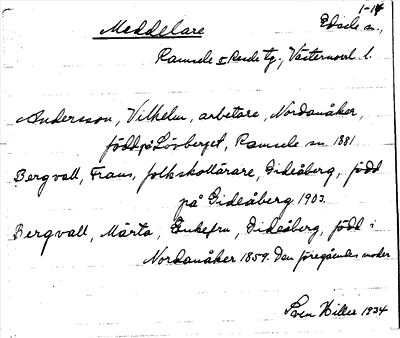 1-14
Meddelare Edsele sn.,
Ramsele o Resele tg., Västernorrl. l.
Andersson, Vilhelm, arbetare, Nordanåker,
född på Lövberget, Ramsele sn 1881
Bergvall, Frans, folkskollärare, Gideåberg, född
på Gideåberg 1903.
Bergvall, Märta, Enkefru, Gideåberg, född i
Nordanåker 1859. Den föregåendes moder
Sven Hiller 1934